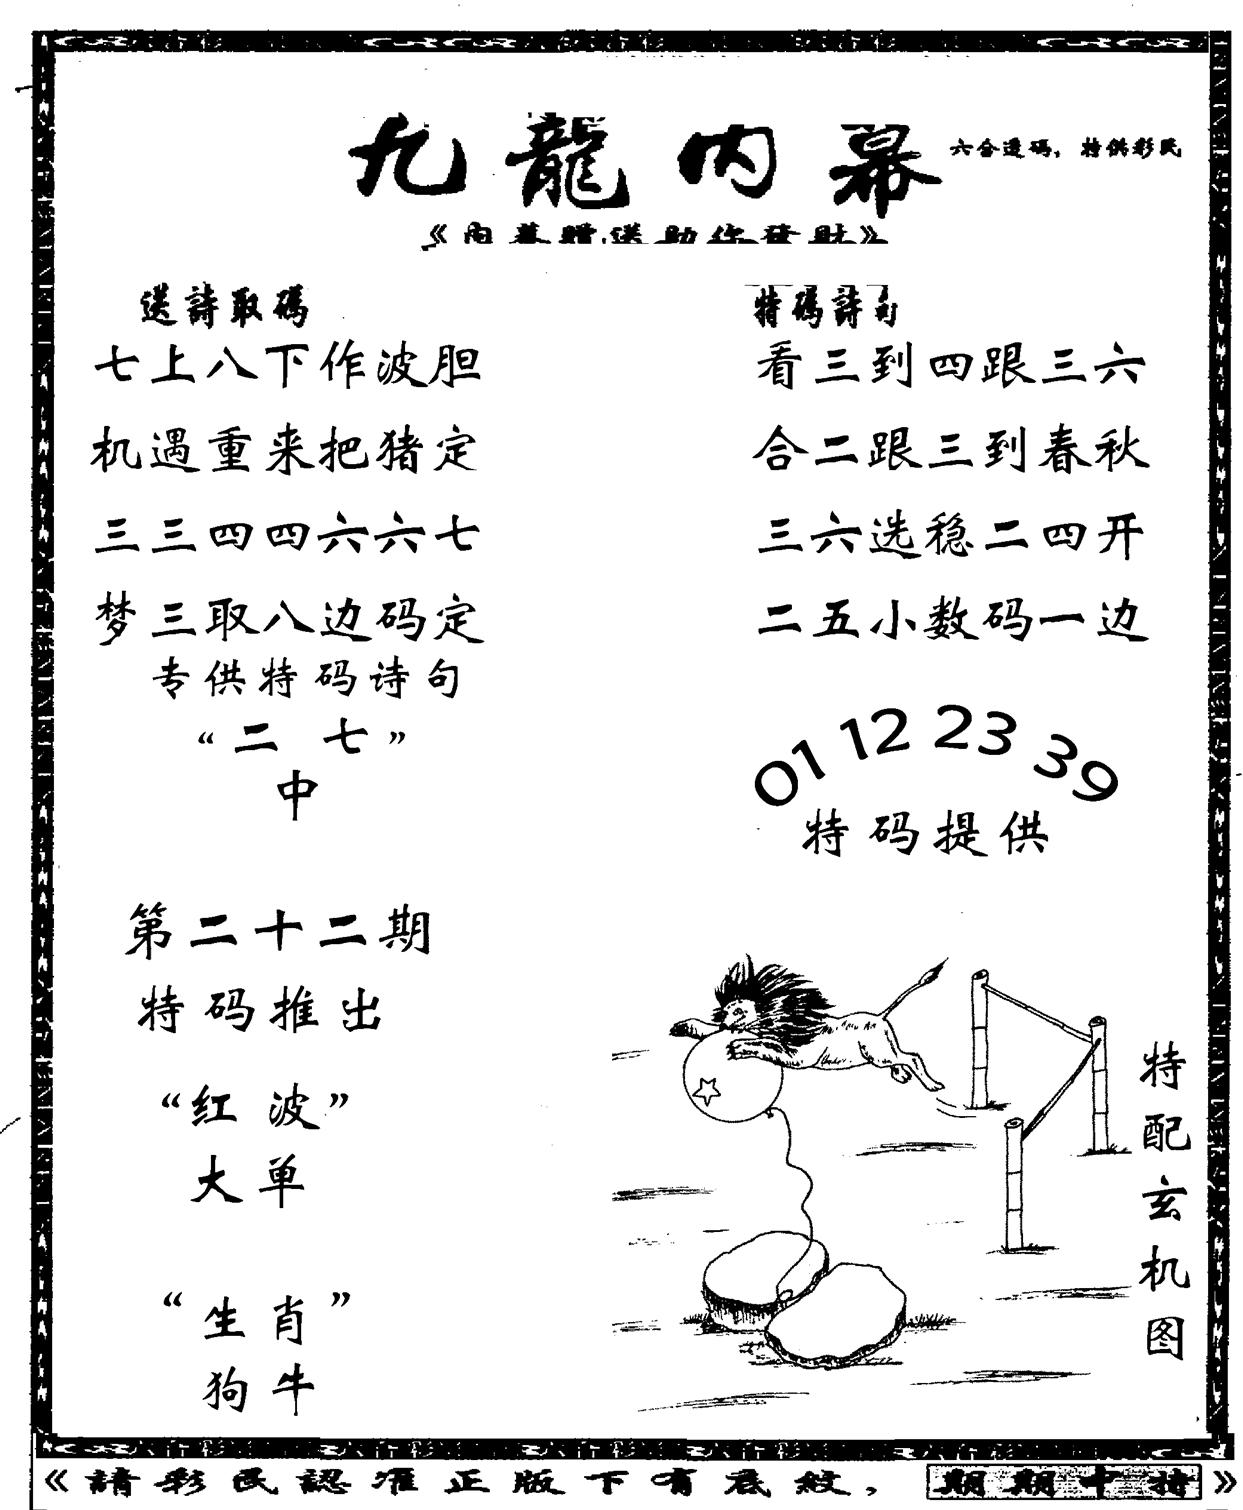 九龍内幕
六合透码，特供彩民
《内幕贈送助你發財》
送詩取碼
七上八下作波胆
机遇重来把猪定
三三四四六六七
梦三取八边码定
专供特码诗句
“二七”
中
第二十二期
特码推出
“红波”
大单
“生肖”
狗牛
特碼詩句
看三到四跟三六
合二跟三到春秋
三六选稳二四开
二五小数码一边
01 12 23 39
特码提供
特配玄机图
《請彩民認准正版下有底紋，期期中特》